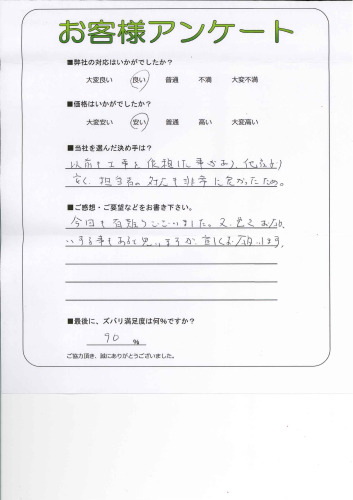 お客様アンケート
■弊社の対応はいかがでしたか？
大変良い 良い 普通 不満 大変不満
■価格はいかがでしたか？
大変安い 安い 普通 高い 大変高い
■当社を選んだ決め手は？
以前も工事を依頼した事があり、他店より
安く、担当者の対応も非常に良かったため。
■ご感想・ご要望などをお書き下さい。
今回も有難うございました。又、色々お願
いする事もあると思いますが、宜しくお願いします。
■最後に、ズバリ満足度は何%ですか？
90 %
ご協力頂き、誠にありがとうございました。